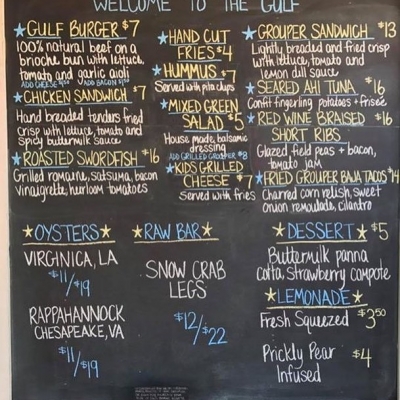 WELCOME TO THE GULF
★GULF BURGER $7
100% natural beef on a
brioche bun with lettuce,
tomato and garlic aioli
★CHICKEN SANDWICH $7
Hand breaded tenders fried
crisp with lettuce, tomato and
spicy buttermilk sauce
★ROASTED SWORDFISH $16
Grilled romaine, satsuma, bacon
vinaigrette, heirloom tomatoes
★HAND CUT
FRIES $4
★HUMMUS $7
Served with pita chips
★MIXED GREEN
SALAD $5
House made, balsamic
dressing
ADD GRILLED GROUPER $8
★KIDS GRILLED
CHEESE $7
Served with fries
★GROUPER SANDWICH $13
Lightly breaded and fried crisp
with lettuce, tomato and
lemon dill sauce
★SEARED AHI TUNA $16
Confit fingerling potatoes + frisée
★RED WINE BRAISED $16
SHORT RIBS
Glazed field peas + bacon,
tomato jam
★FRIED GROUPER BAJA TACOS $14
Charred corn relish, sweet
onion remoulade, cilantro
★OYSTERS★
VIRGINICA, LA
$11/$19
RAPPAHANNOCK
CHESAPEAKE, VA
$11/$19
★RAW BAR★
SNOW CRAB
LEGS
$12/$22
★DESSERT★ $5
Buttermilk panna
cotta, strawberry compote
★LEMONADE★
Fresh Squeezed $3.50
Prickly Pear $4
Infused